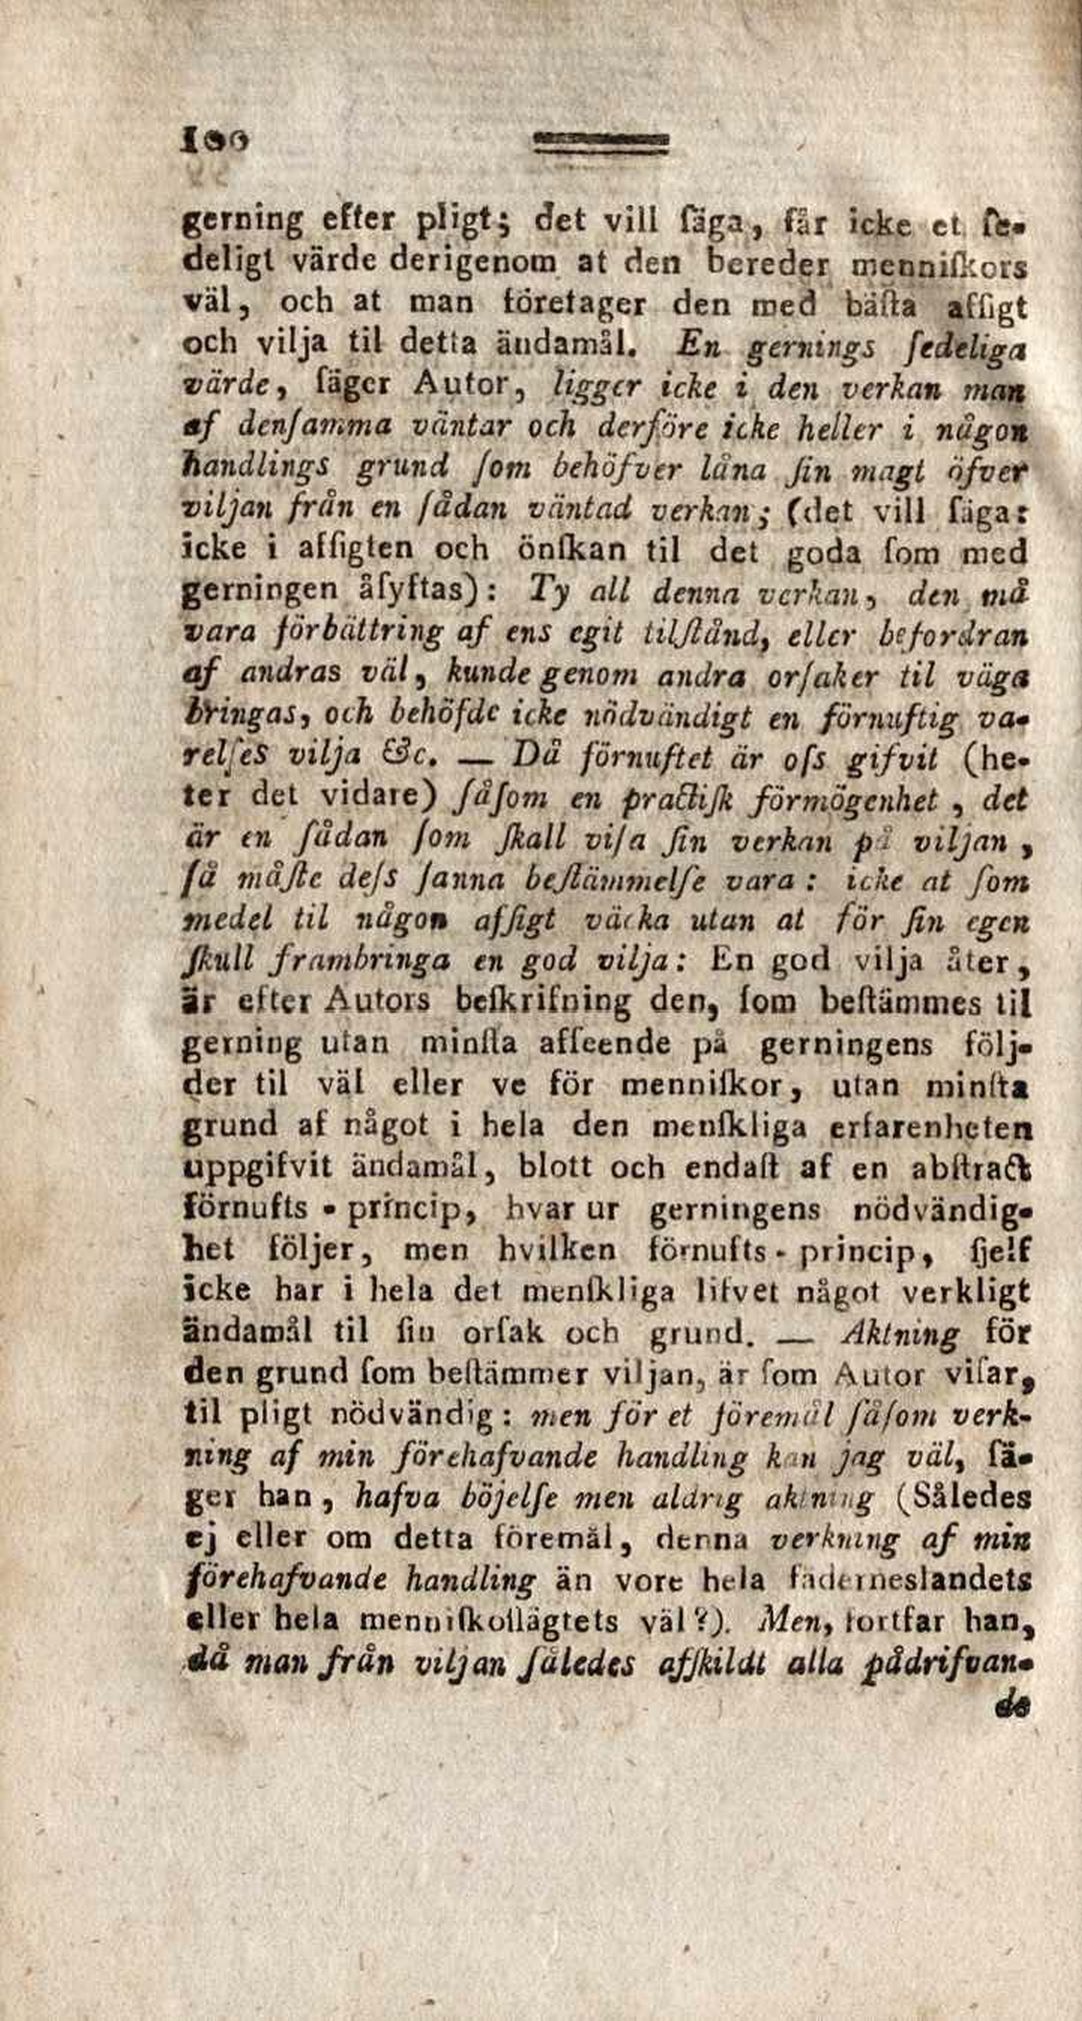 100
gerning efter pligt; det vill ſäga, får icke et ſe-
deligt värde derigenom at den bereder menniſkors
väl, och at man företager den med bäſta afſigt
och vilja til detta ändamål. En gernings ſedeliga
värde, ſäger Autor, ligger icke i den verkan man
af denſamma väntar och derföre icke heller i någon
handlings grund ſom behöfver låna ſin magt öfver
viljan från en ſådan väntad verkan; (det vill ſäga:
icke i afſigten och önſkan til det goda ſom med
gerningen åſyftas): Ty all denna verkan, den må
vara förbättring af ens egit tilſtånd, eller befordran
af andras väl, kunde genom andra orſaker til väga
bringas, och behöfde icke nödvändigt en förnuftig va-
relſes vilja &c. — Då förnuftet är oſs gifvit (he-
ter det vidare) ſåſom en practiſk förmögenhet, det
är en ſådan ſom ſkall viſa ſin verkan på viljan,
ſå måſte deſs ſanna beſtämmelſe vara: icke at ſom
medel til någon afſigt väcka utan at för ſin egen
ſkull frambringa en god vilja: En god vilja åter,
är efter Autors beſkrifning den, ſom beſtämmes til
gerning utan minſta afſeende på gerningens följ-
der til väl eller ve för menniſkor, utan minſta
grund af något i hela den menſkliga erfarenheten
uppgifvit ändamål, blott och endaſt af en abſtract
förnufts-princip, hvar ur gerningens nödvändig-
het följer, men hvilken förnufts-princip, ſjelf
icke har i hela det menſkliga lifvet något verkligt
ändamål til ſin orſak och grund. — Aktning för
den grund ſom beſtämmer viljan, är ſom Autor viſar,
til pligt nödvändig: men för et föremål ſåſom verk-
ning af min förehafvande handling kan jag väl, ſä-
ger han, hafva böjelſe men aldrig aktning (Således
ej eller om detta föremål, denna verkning af min
förehafvande handling än vore hela fäderneslandets
eller hela menniſkoſlägtets väl?). Men, fortfar han,
då man från viljan ſåledes afſkildt alla pådrifvan-
de